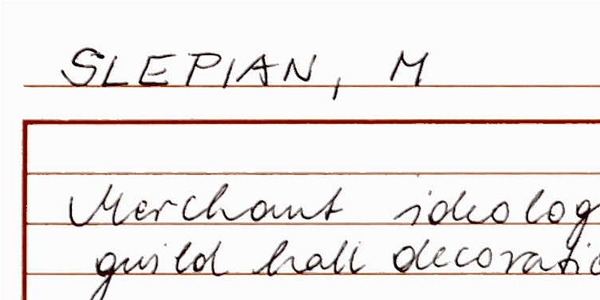 SLEPIAN, M
Merchant ideolog
guild hall decoratio